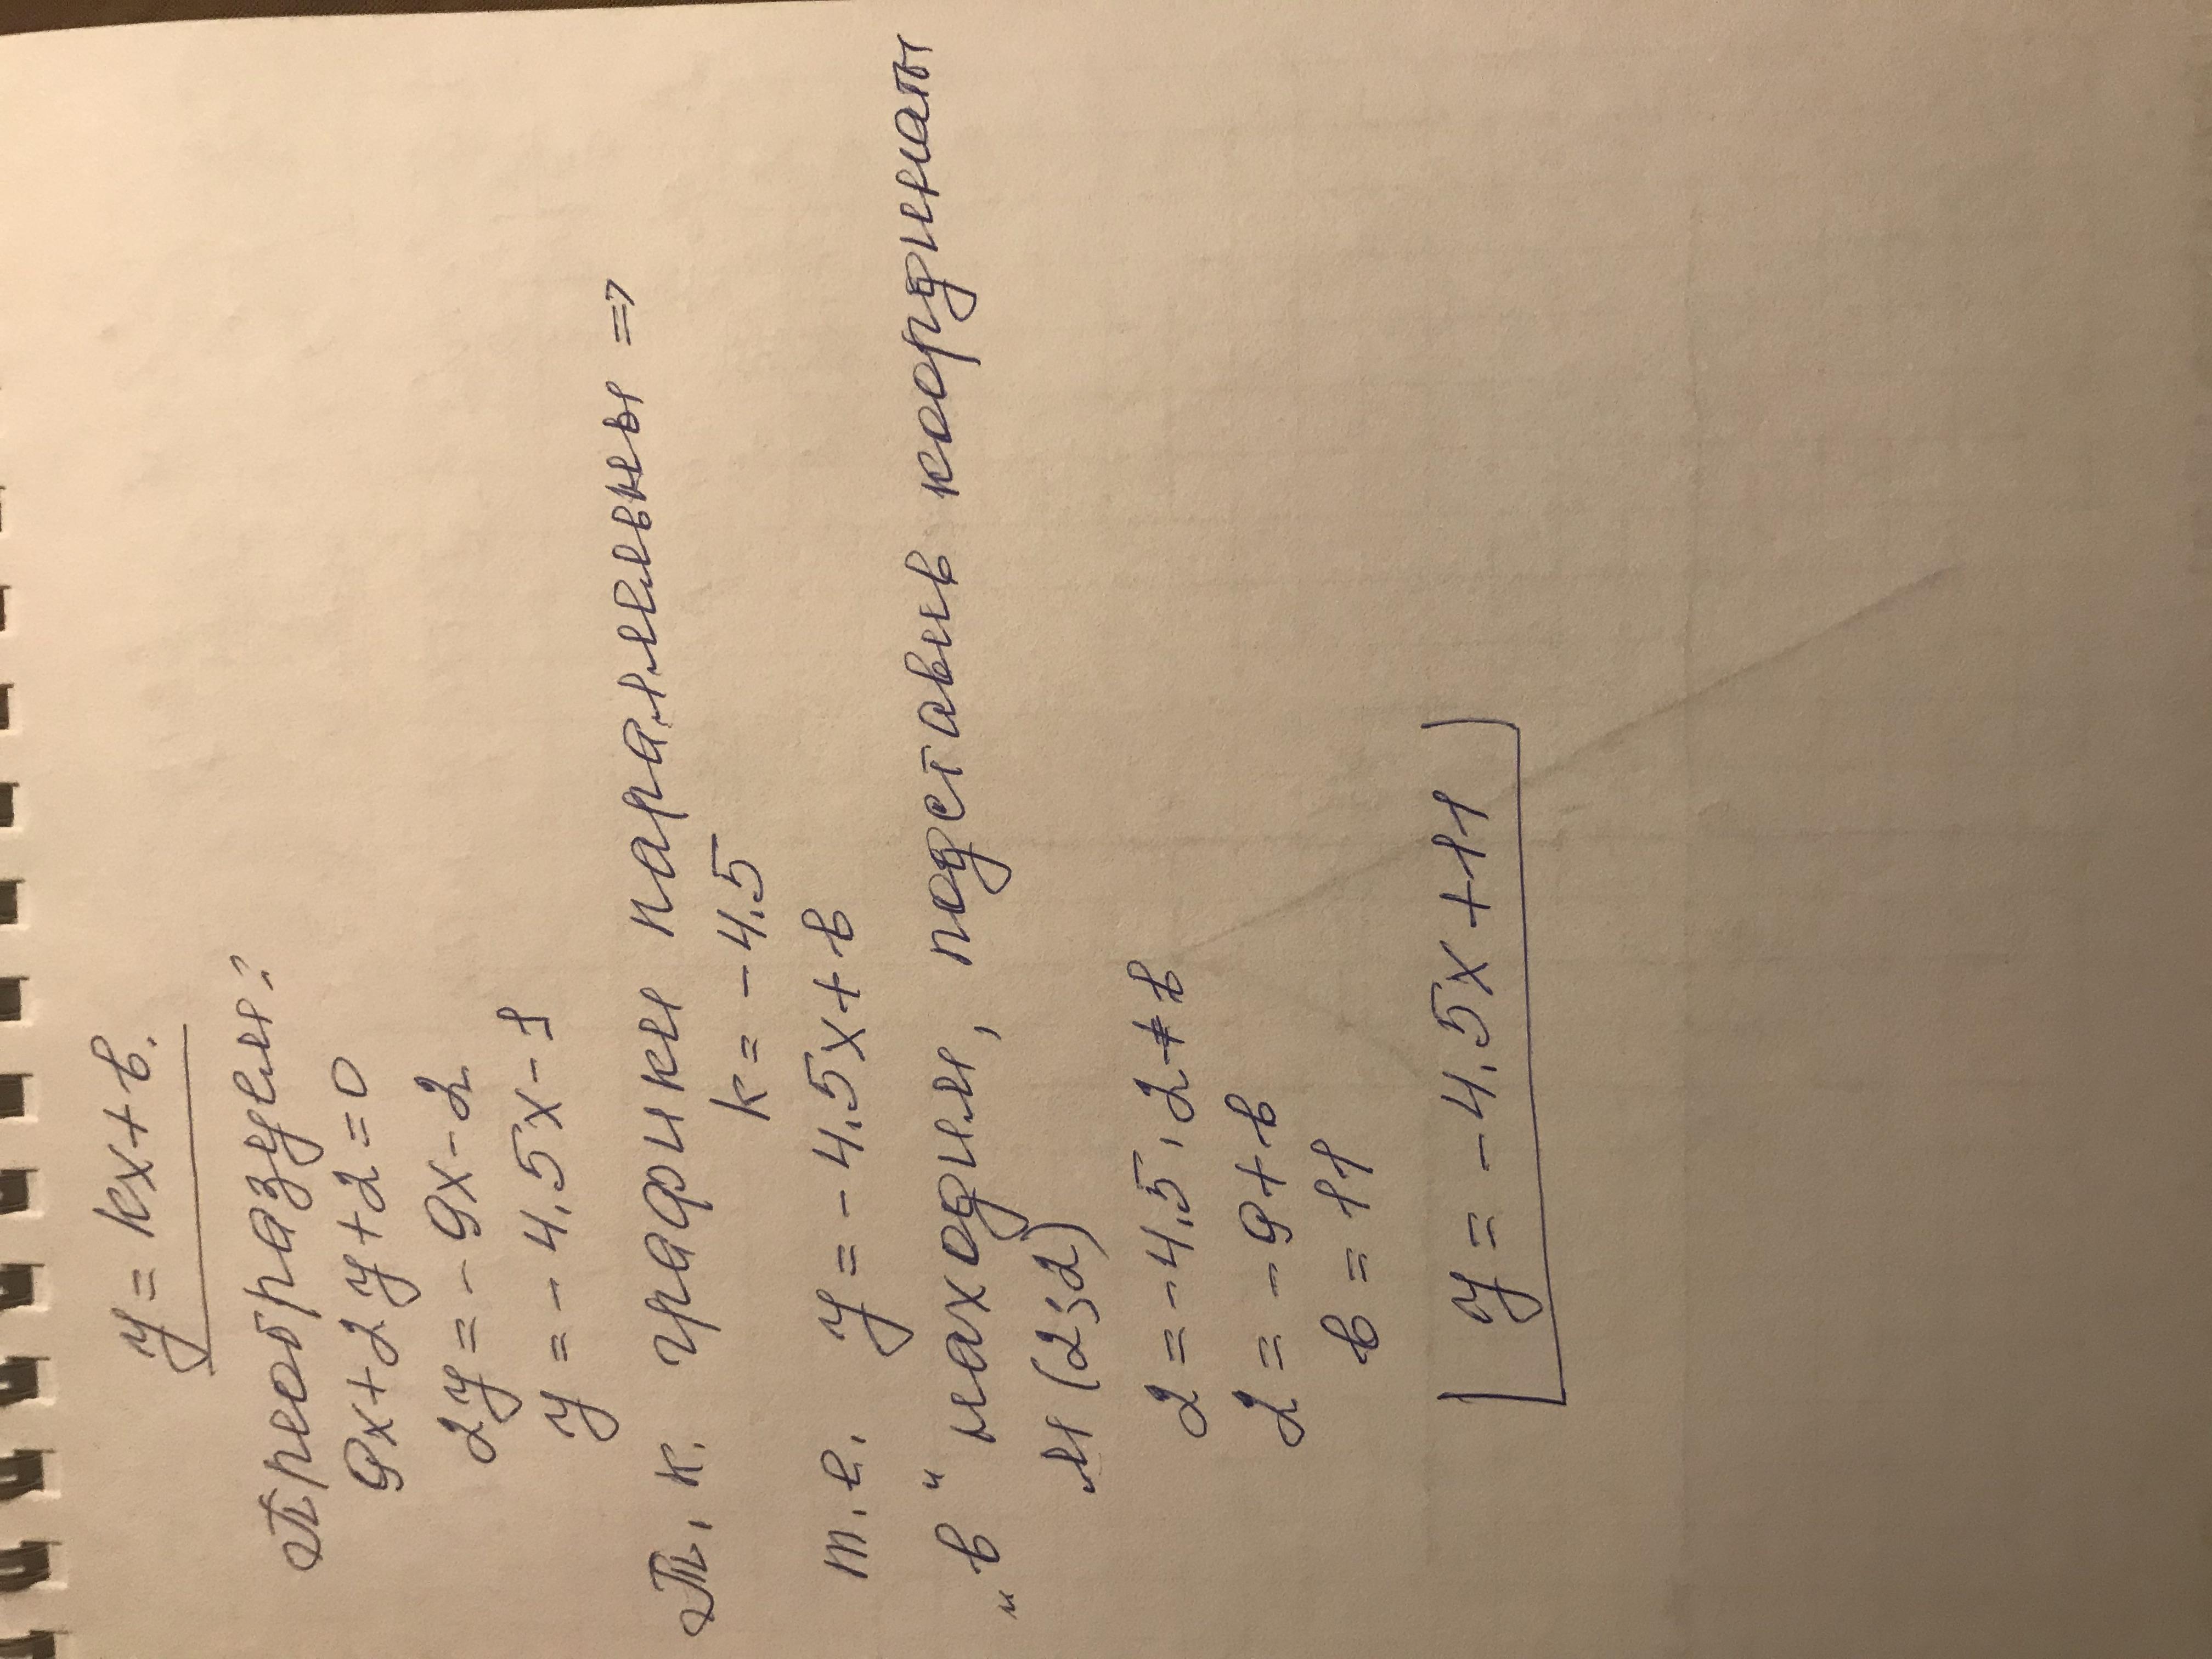 y = kx + b.
Преобразуем:
9x + 2y + 2 = 0
2y = -9x - 2
y = -4.5x - 1
Т. к. графики параллельны =>
k = -4.5
т. е. y = -4.5x + b
„b" находим, подставив координаты
М (2;2)
2 = -4.5 · 2 + b
2 = -9 + b
b = 11
y = -4.5x + 11